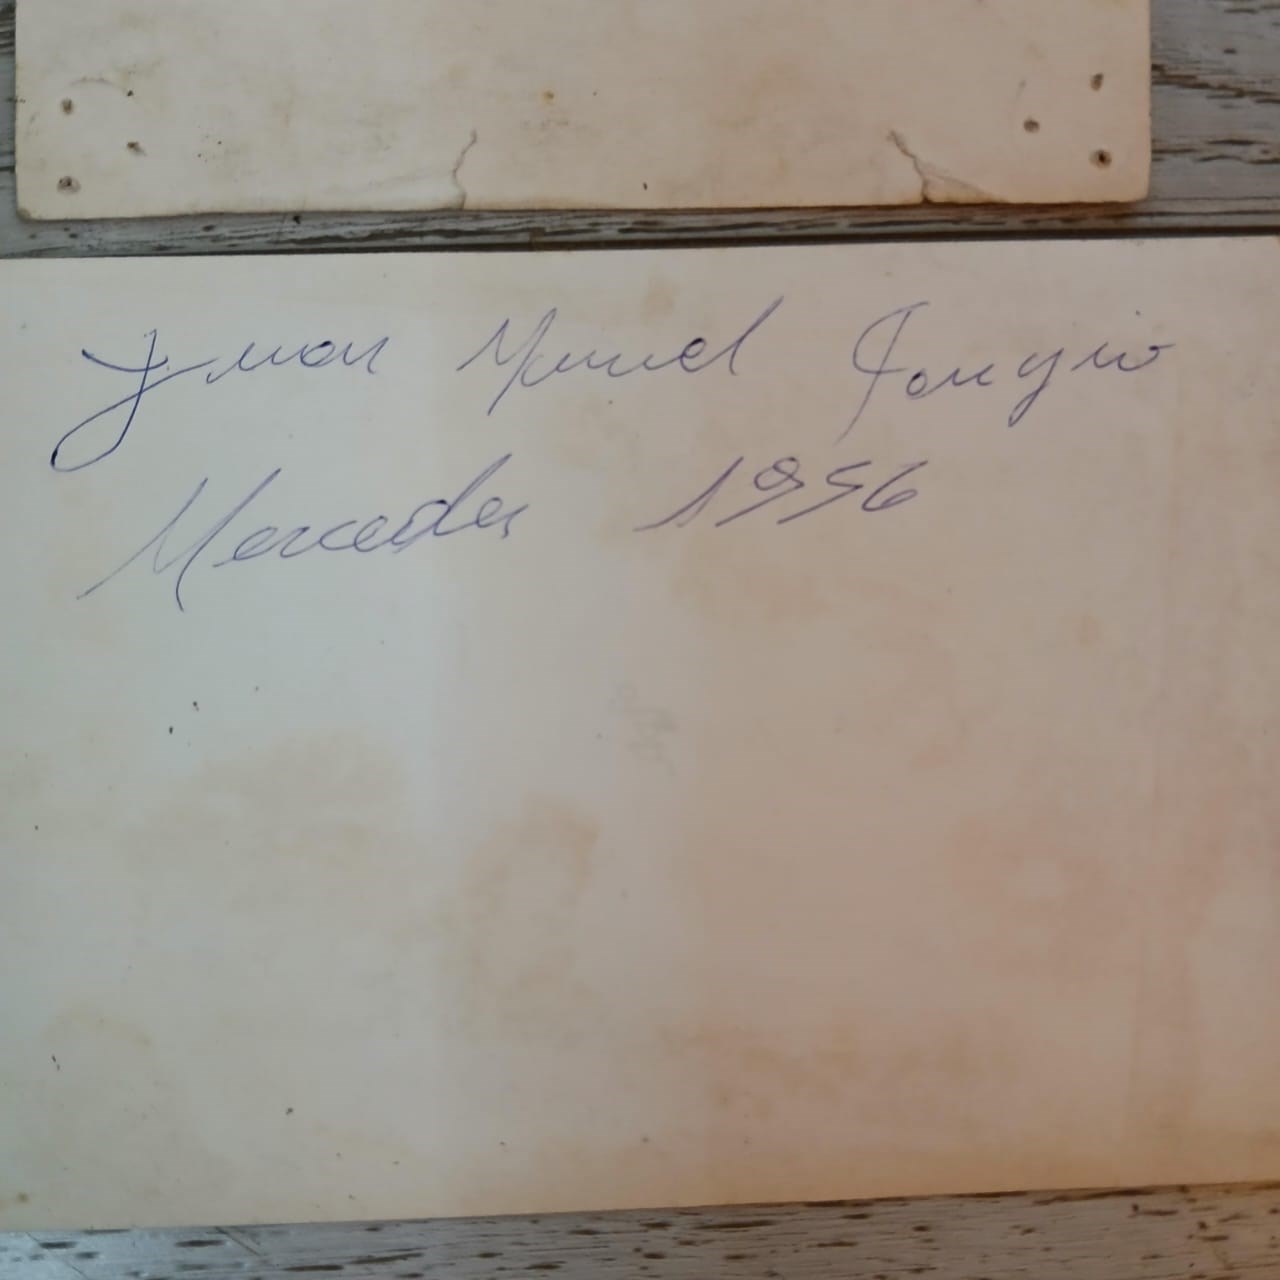 Juan Manuel Fangio
Mercedes 1956